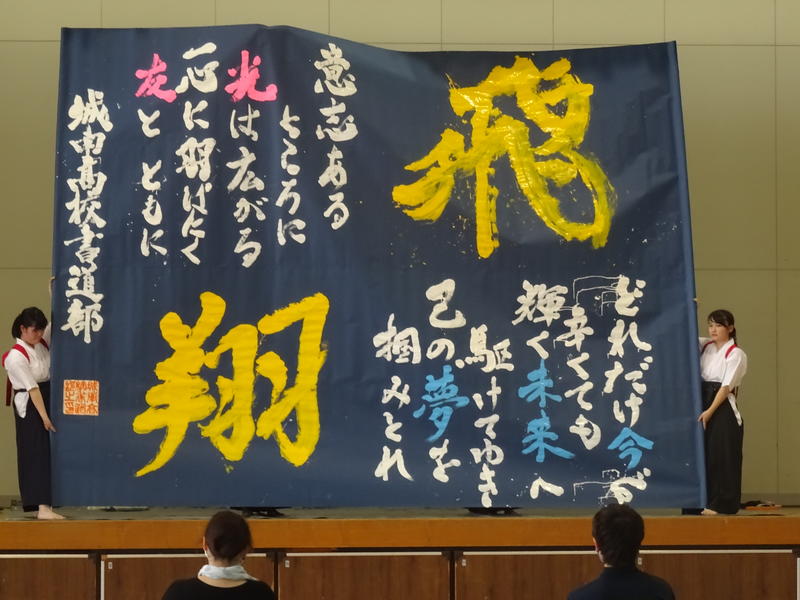 飛
どれだけ今が
辛くても
輝く未来へ
駆けてゆき
己の夢を
掴みとれ
意志ある
ところに
光は広がる
一心に羽ばたく
友と ともに
翔
城南高校書道部